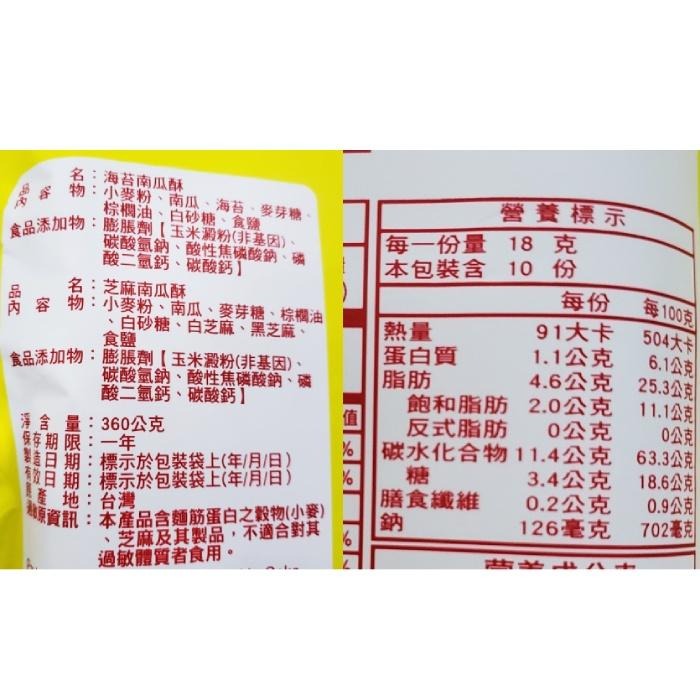 品名：海苔南瓜酥
內容物：小麥粉、南瓜、海苔、麥芽糖、
棕櫚油、白砂糖、食鹽
食品添加物：膨脹劑【玉米澱粉(非基因)、
碳酸氫鈉、酸性焦磷酸鈉、磷
酸二氫鈣、碳酸鈣】
品名：芝麻南瓜酥
內容物：小麥粉、南瓜、麥芽糖、棕櫚油
、白砂糖、白芝麻、黑芝麻、
食鹽
食品添加物：膨脹劑【玉米澱粉(非基因)、
碳酸氫鈉、酸性焦磷酸鈉、磷
酸二氫鈣、碳酸鈣】
淨含量：360公克
保存期限：一年
製造日期：標示於包裝袋上(年/月/日)
有效日期：標示於包裝袋上(年/月/日)
原產地：台灣
過敏原資訊：本產品含麵筋蛋白之穀物(小麥)
、芝麻及其製品，不適合對其
過敏體質者食用。
營養標示
每一份量 18 克
本包裝含 10 份
每份 每100克
熱量 91大卡 504大卡
蛋白質 1.1公克 6.1公克
脂肪 4.6公克 25.3公克
飽和脂肪 2.0公克 11.1公克
反式脂肪 0公克 0公克
碳水化合物 11.4公克 63.3公克
糖 3.4公克 18.6公克
膳食纖維 0.2公克 0.9公克
鈉 126毫克 702毫克
值
%
%
%
%